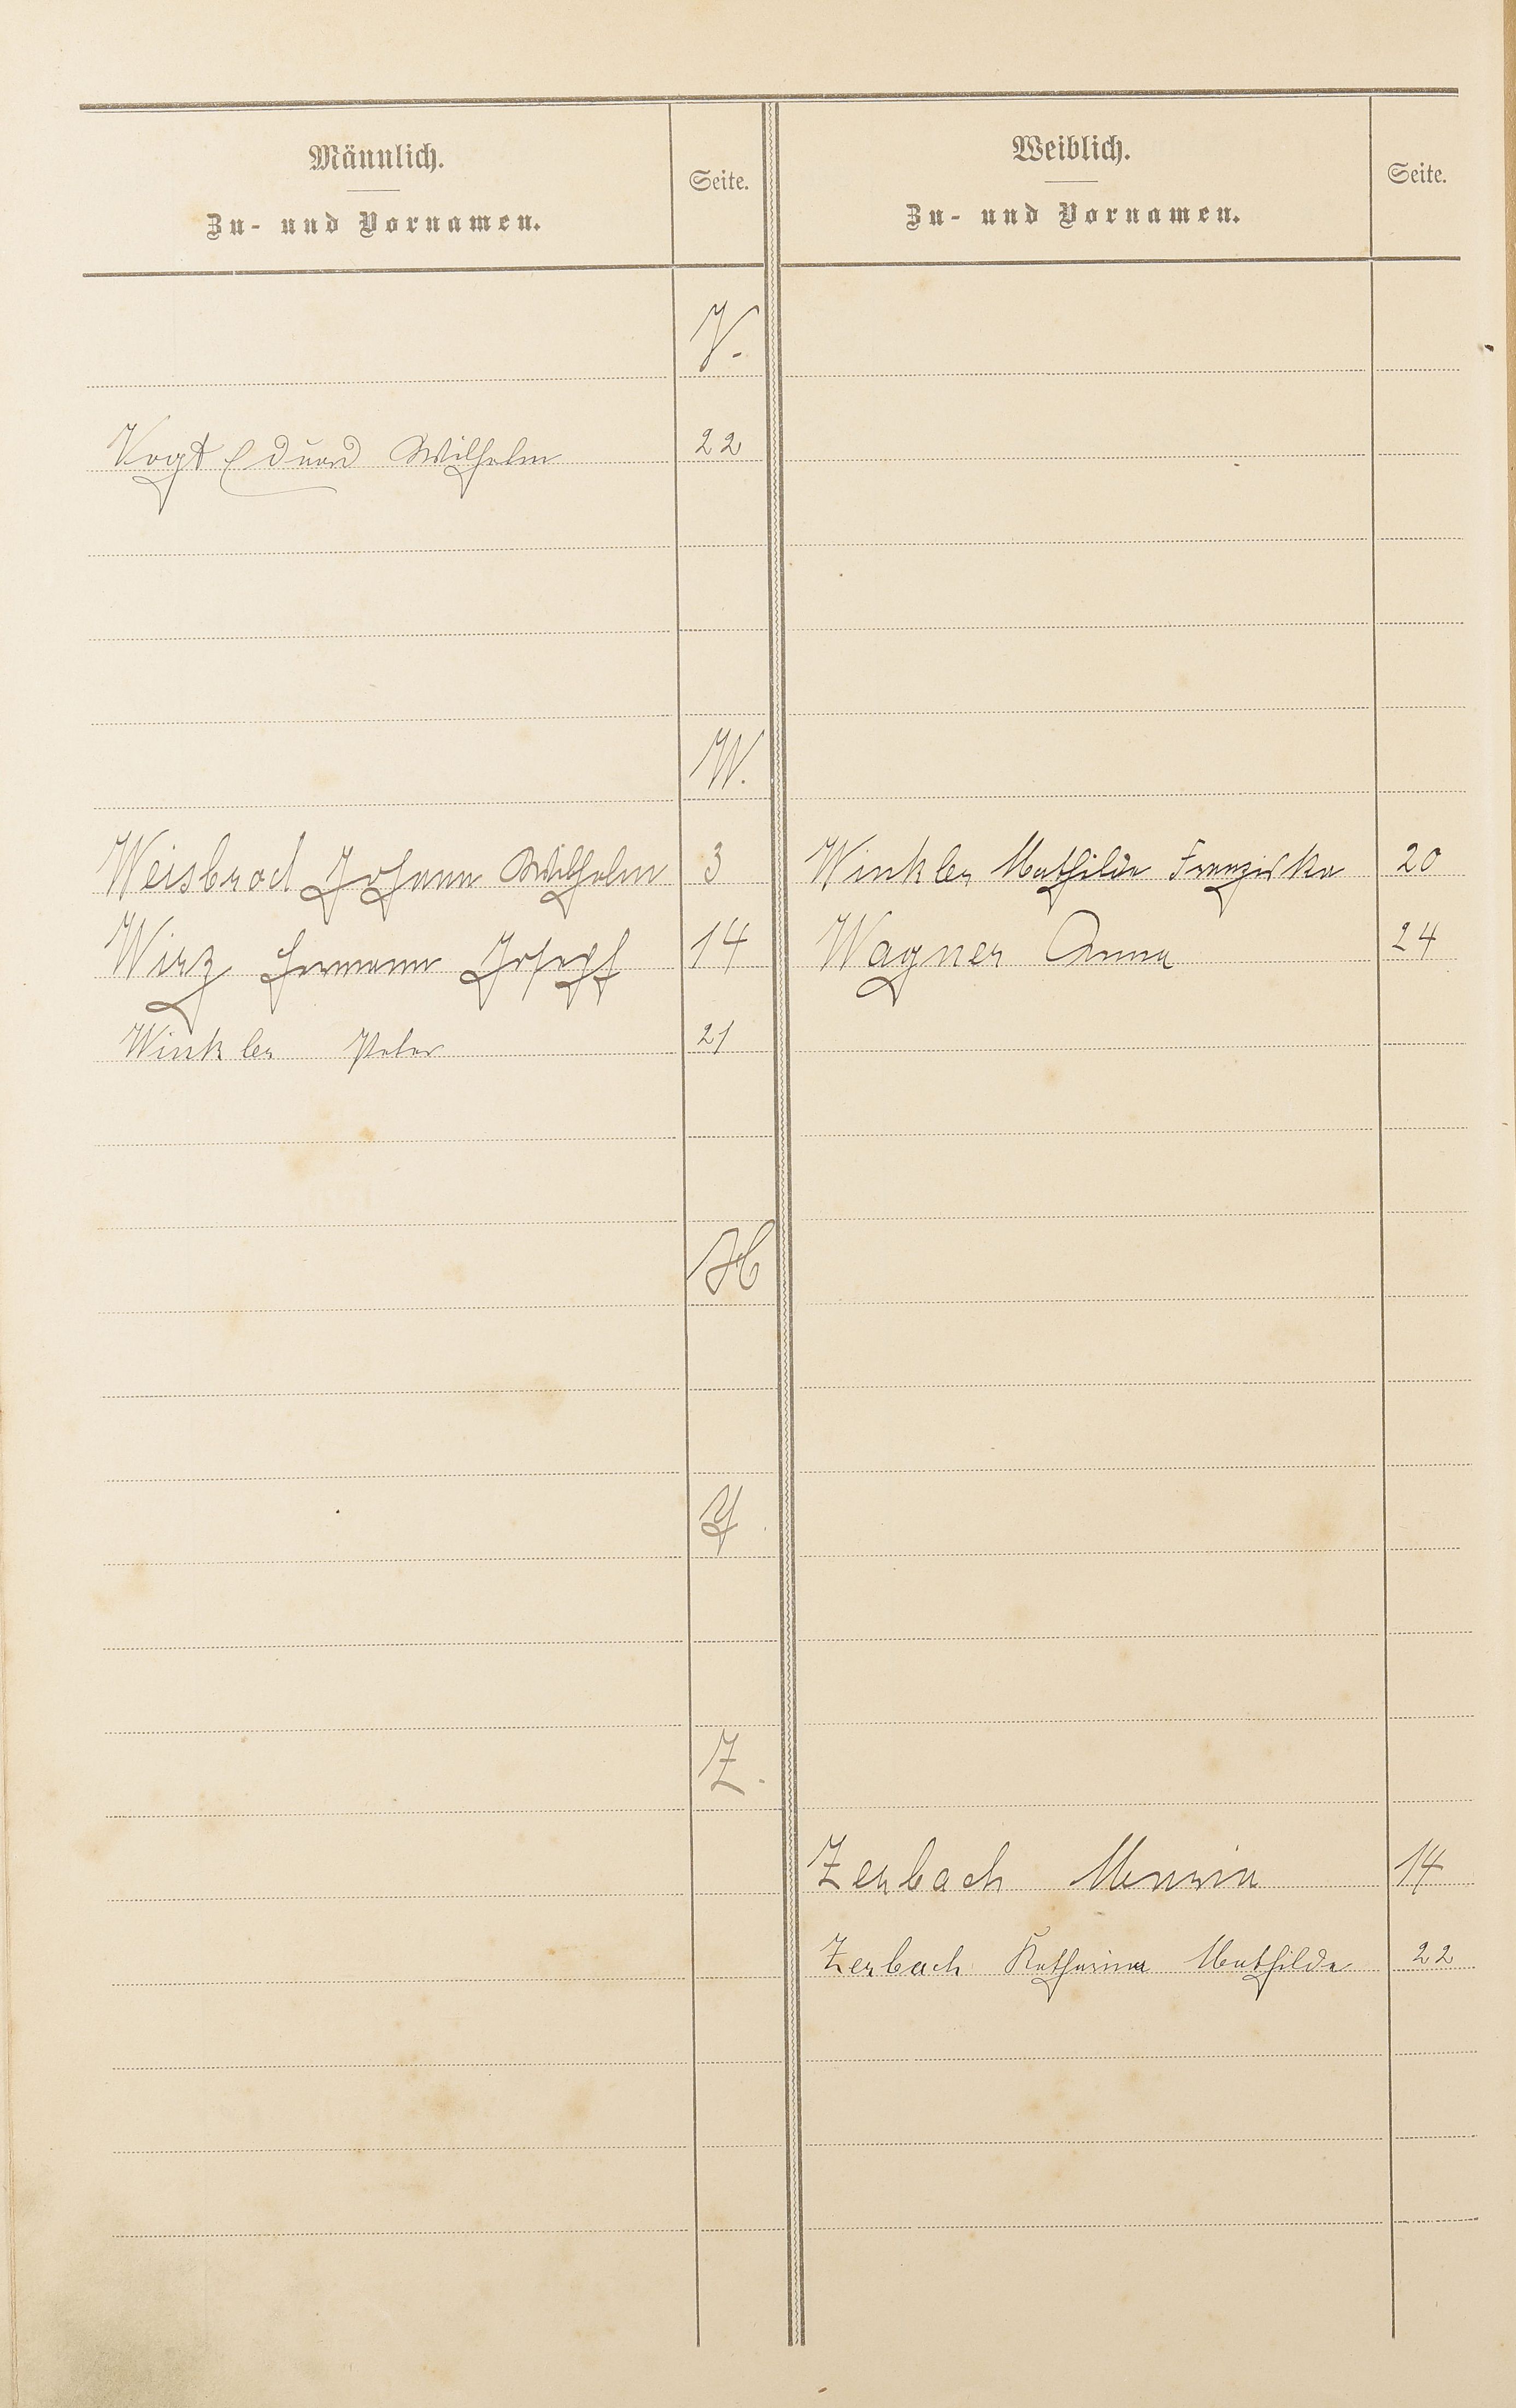 Männlich.
Zu- und Vornamen.
Seite.
Weiblich.
Zu- und Vornamen.
Seite.
V.
Vogt Eduard Wilhelm 22
W.
Weisbrod Johann Wilhelm 3 Winkler Mathilde Franziska 20
Wirz Hermann Joseph 14 Wagner Anna 24
Winkler Peter 21
X
Y.
Z.
Zerbach 14
Zerbach Katharina Mathilde 22